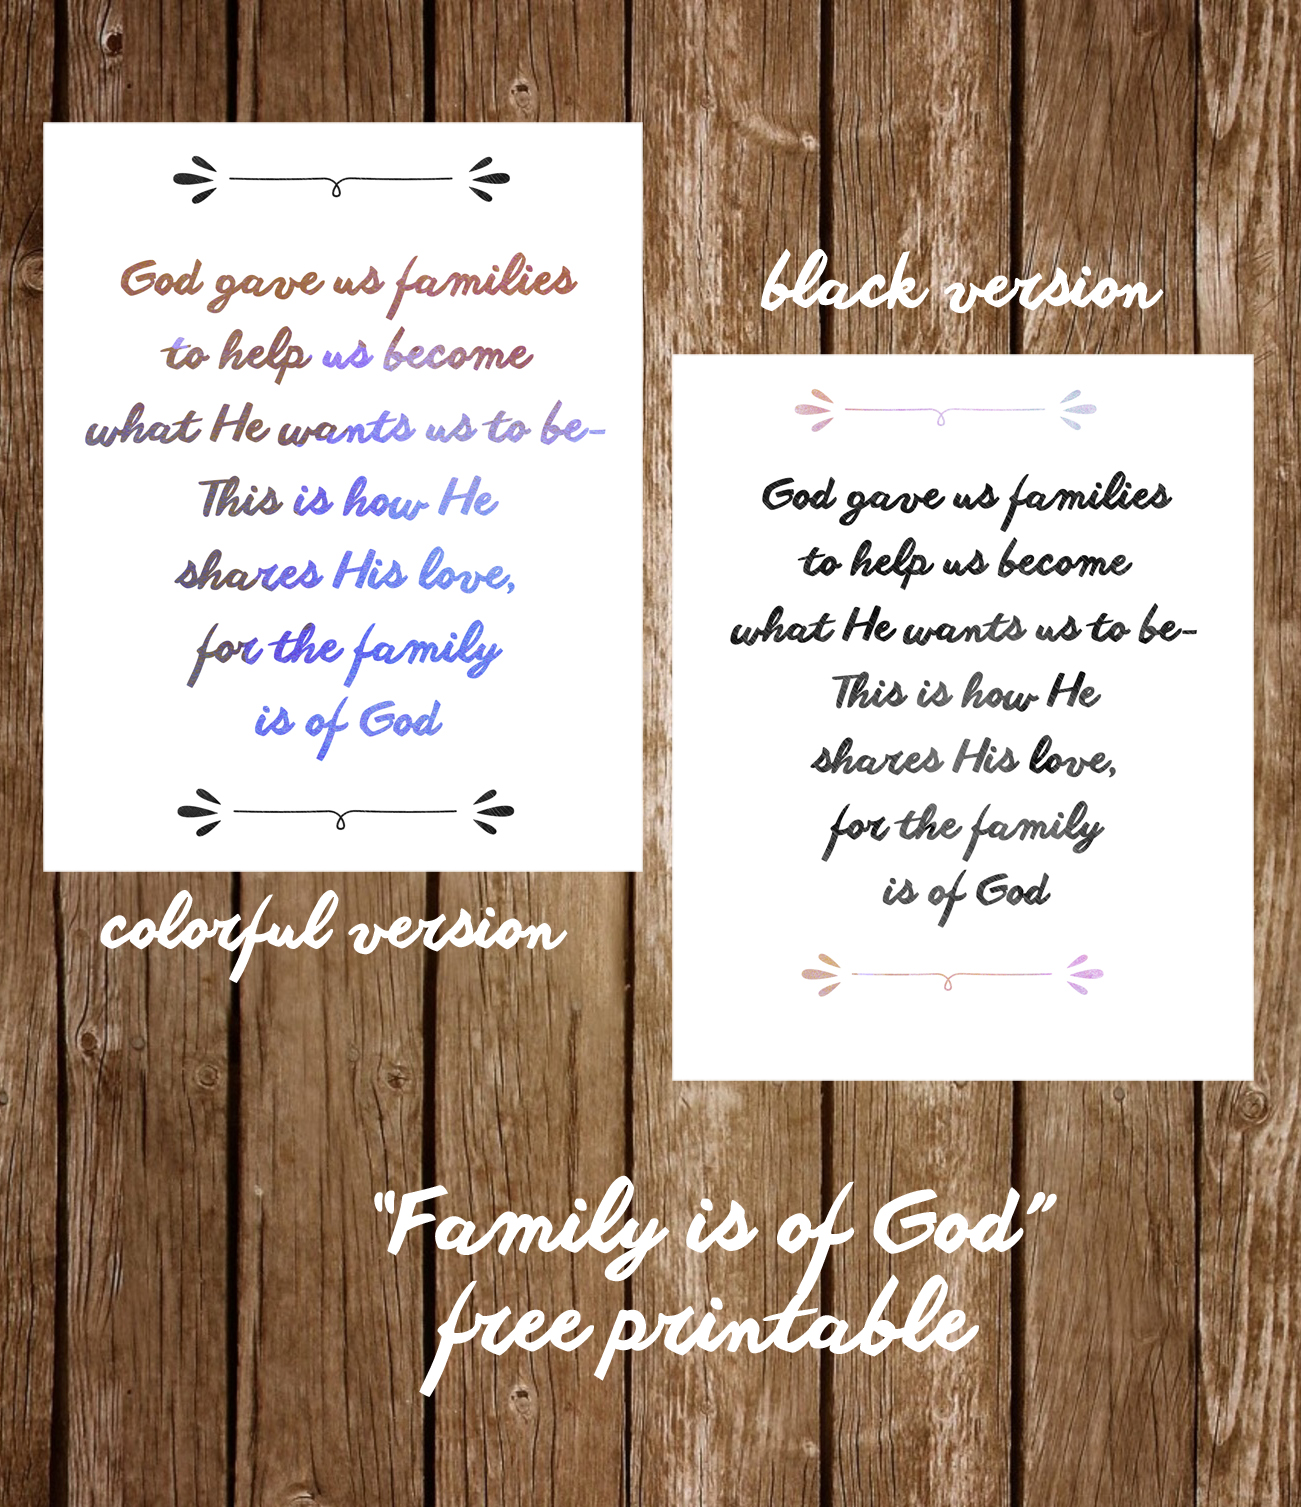 God gave us families
to help us become
what He wants us to be-
This is how He
shares His love,
for the family
is of God
colorful version
black version
God gave us families
to help us become
what He wants us to be-
This is how He
shares His love,
for the family
is of God
"Family is of God"
free printable